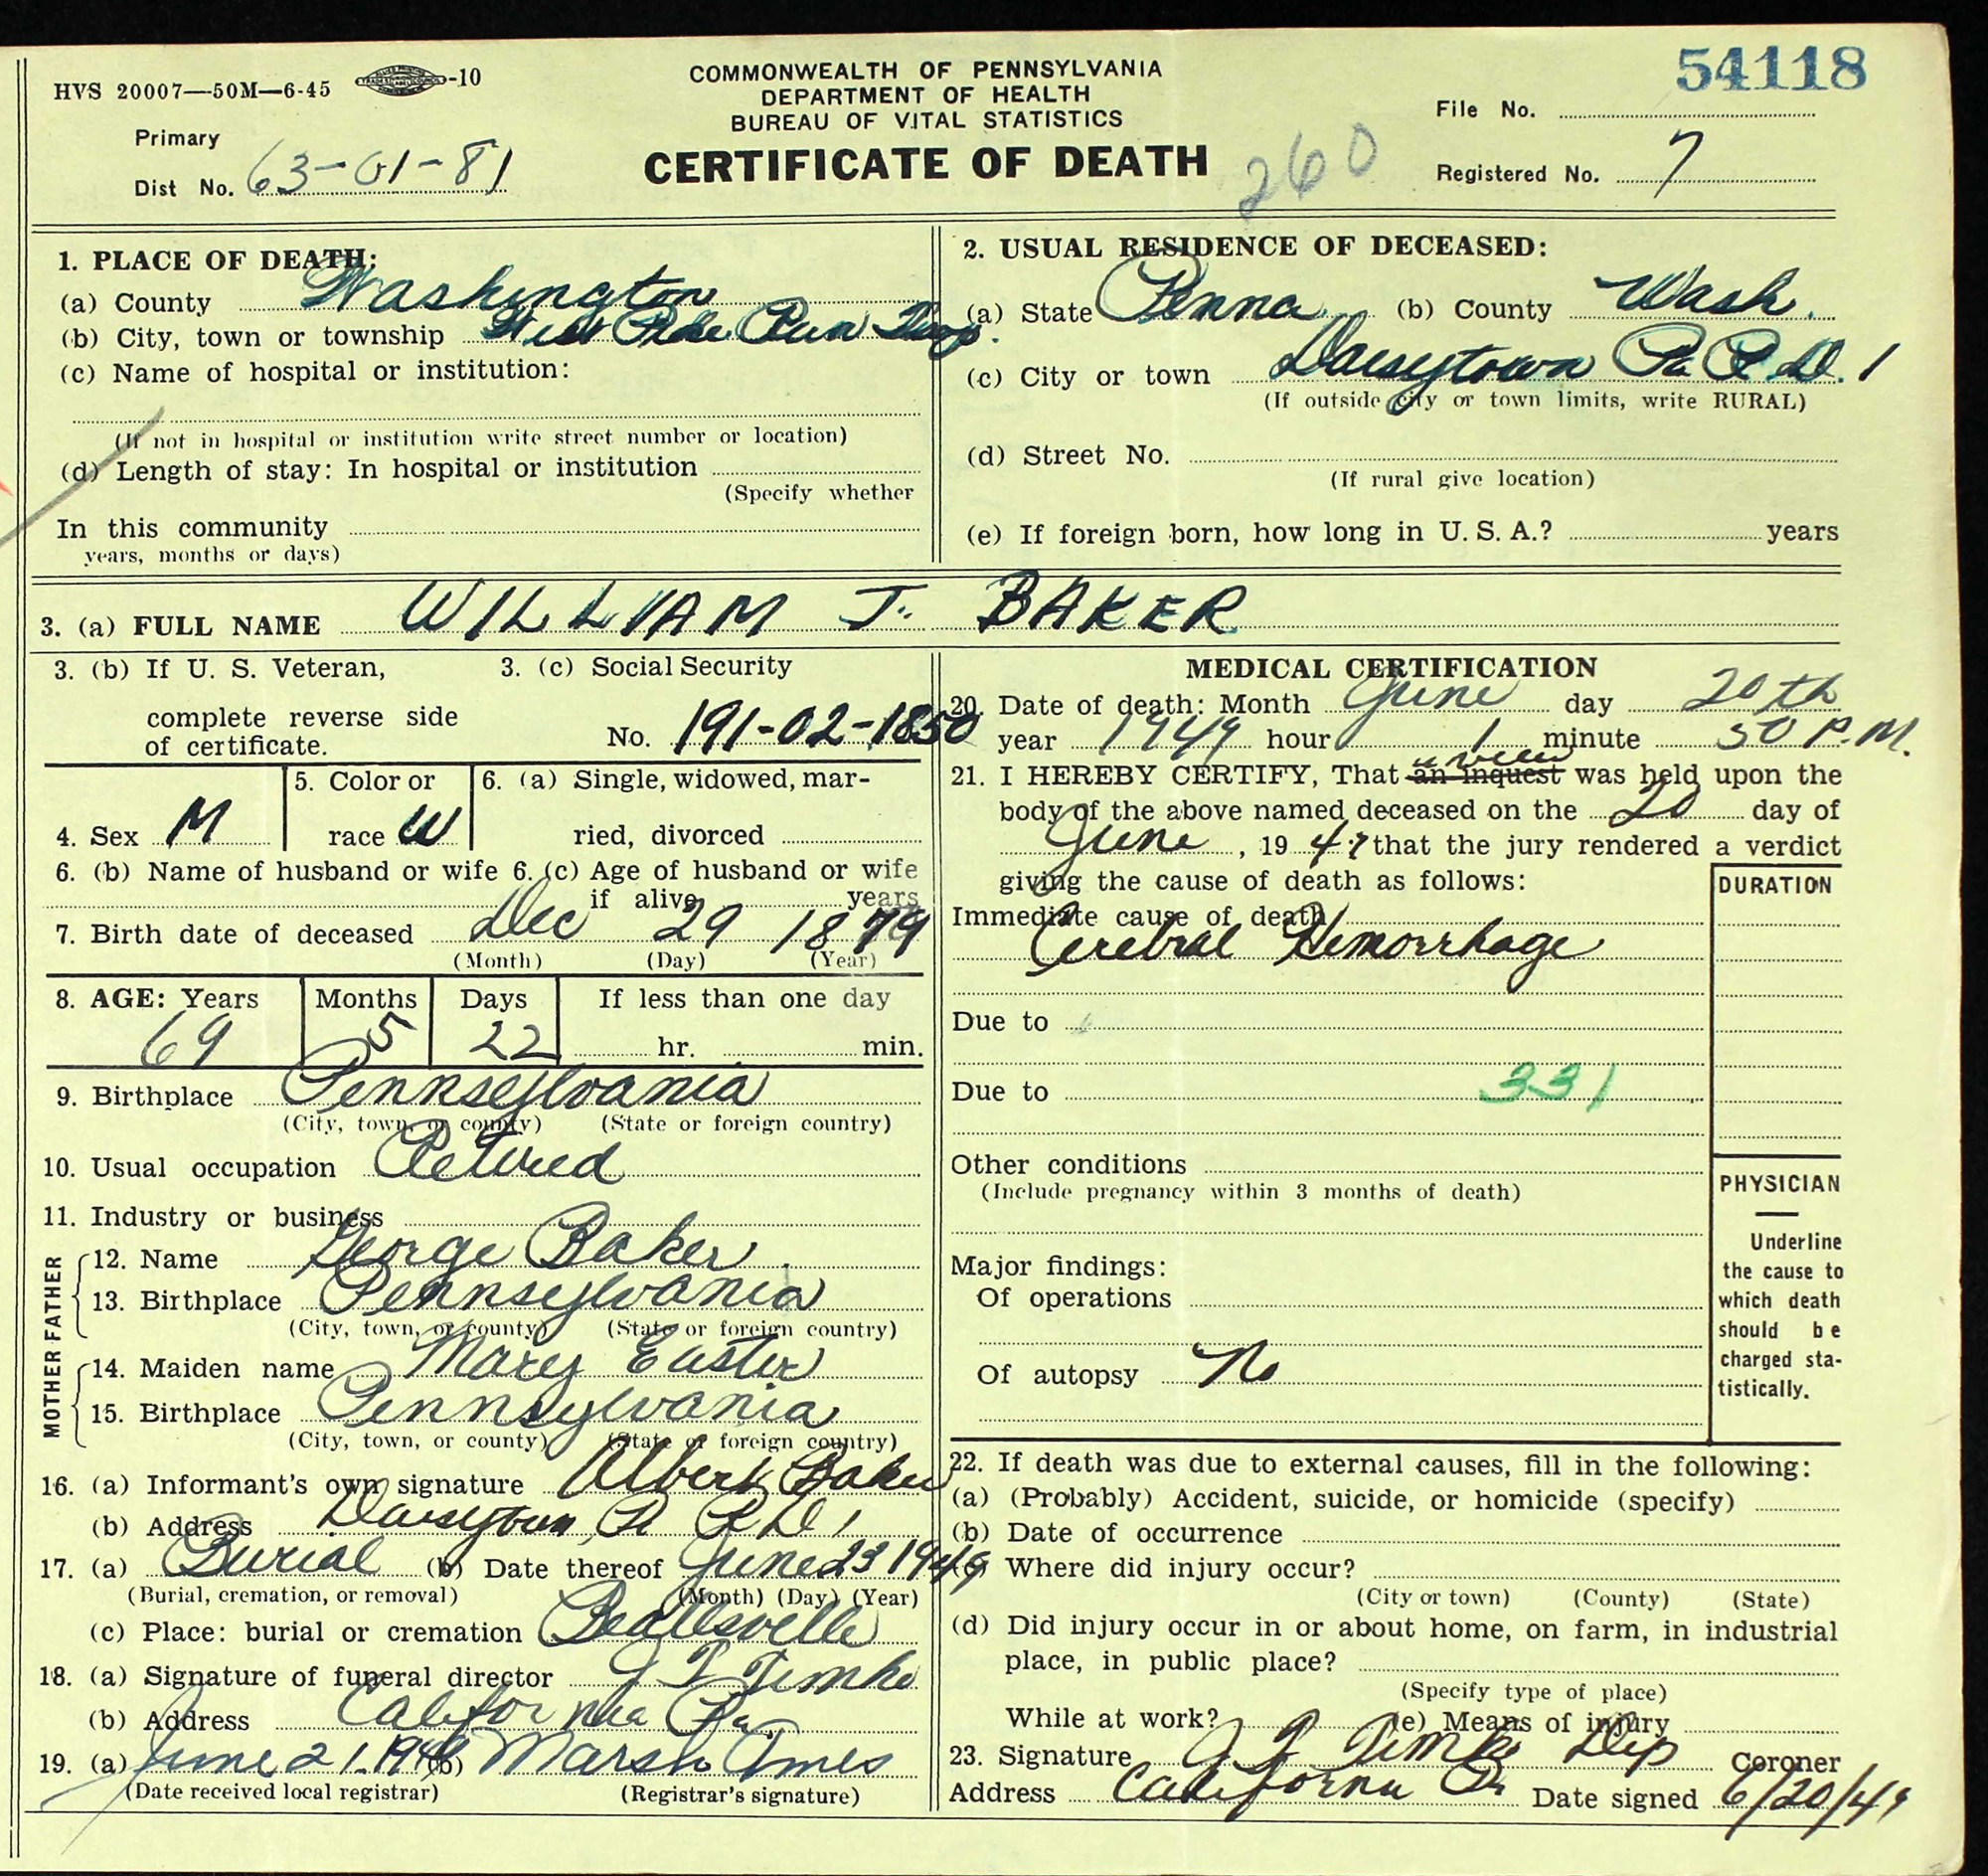 54118
HVS 20007—50M—6-45 -10
COMMONWEALTH OF PENNSYLVANIA
DEPARTMENT OF HEALTH
BUREAU OF VITAL STATISTICS
CERTIFICATE OF DEATH
260
File No.
Primary
Dist No. 63-01-81
Registered No. 7
1. PLACE OF DEATH:
(a) County Washington
(b) City, town or township West Pike Run Twp.
(c) Name of hospital or institution:
(If not in hospital or institution write street number or location)
(d) Length of stay: In hospital or institution
(Specify whether
In this community
years, months or days)
2. USUAL RESIDENCE OF DECEASED:
(a) State Penna. (b) County Wash.
(c) City or town Daisytown Pa R.D. 1
(If outside city or town limits, write RURAL)
(d) Street No.
(If rural give location)
(e) If foreign born, how long in U. S. A.? years
3. (a) FULL NAME WILLIAM J. BAKER
3. (b) If U. S. Veteran,
complete reverse side
of certificate.
3. (c) Social Security
No. 191-02-1850
4. Sex M
5. Color or
race W
6. (a) Single, widowed, mar-
ried, divorced
6. (b) Name of husband or wife 6. (c) Age of husband or wife
if alive years
7. Birth date of deceased Dec 29 1879
(Month) (Day) (Year)
8. AGE: Years Months Days If less than one day
69 5 22 hr. min.
9. Birthplace Pennsylvania
(City, town, or county) (State or foreign country)
10. Usual occupation Retired
11. Industry or business
FATHER
12. Name George Baker
13. Birthplace Pennsylvania
(City, town, or county) (State or foreign country)
MOTHER
14. Maiden name Mary Easter
15. Birthplace Pennsylvania
(City, town, or county) (State or foreign country)
16. (a) Informant's own signature Albert Baker
(b) Address Daisytown Pa R D 1
17. (a) Burial (b) Date thereof June 23 1949
(Burial, cremation, or removal) (Month) (Day) (Year)
(c) Place: burial or cremation Beallsville
18. (a) Signature of funeral director
(b) Address California Pa.
19. (a) June 21, 1949 (b) Marsh Ames
(Date received local registrar) (Registrar's signature)
MEDICAL CERTIFICATION
20. Date of death: Month June day 20th
year 1949 hour 1 minute 50 P.M.
a view
21. I HEREBY CERTIFY, That an inquest was held upon the
body of the above named deceased on the 20 day of
June, 19 49 that the jury rendered a verdict
giving the cause of death as follows:
DURATION
Immediate cause of death
Cerebral Hemorrhage
Due to
Due to 331
Other conditions
(Include pregnancy within 3 months of death)
Major findings:
Of operations
Of autopsy No
PHYSICIAN
Underline
the cause to
which death
should be
charged sta-
tistically.
22. If death was due to external causes, fill in the following:
(a) (Probably) Accident, suicide, or homicide (specify)
(b) Date of occurrence
(c) Where did injury occur?
(City or town) (County) (State)
(d) Did injury occur in or about home, on farm, in industrial
place, in public place?
(Specify type of place)
While at work? (e) Means of injury
23. Signature Dep Coroner
Address California Pa Date signed 6/20/49